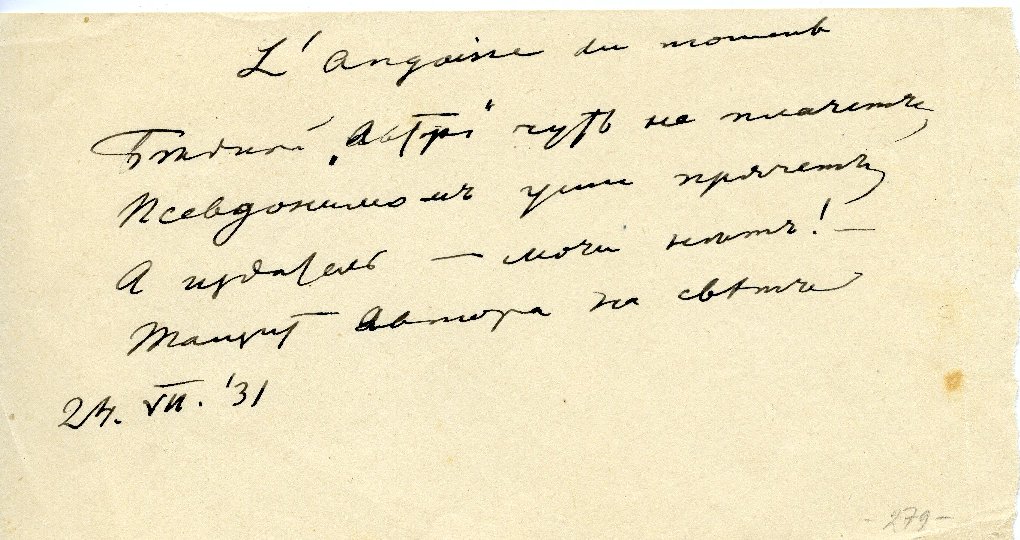 L'Angoisse du moment
Бѣдный „Автръ“ чуть не плачетъ,
Псевдонимомъ уши прячетъ,
А издатель — мочи нѣтъ! —
Тащитъ Автора на свѣтъ
24. VII. '31
- 279 -